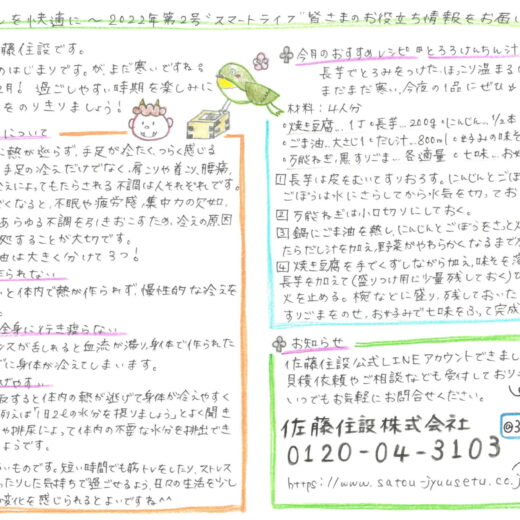 しを快適に〜2022年第2号"スマートライフ"皆さまのお役立ち情報をお届い
藤住設です。
のはじまりです。が、まだ寒いですね
2月! 過ごしやすい時期を楽しみに
をのりきりましょう!
について
に熱が巡らず、手足が冷たく、つらく感じる
手足の冷えだけでなく、肩こりや首こり、腰痛、
えによってもたらされる不調は人それぞれです。
くなると、不眠や疲労感、集中力の欠如、
あらゆる不調を引きおこすため、冷えの原因
処することが大切です。
由は大きく分けて3つ!
作られない
いと体内で熱が作られず、慢性的な冷えを
。
全身に行き渡らない
ンスが乱れると血流が滞り、身体で作られた
ずに身体が冷えてしまいます。
げやすい
反すると体内の熱が逃げて身体が冷えやすく
例えば「1日2Lの水分を摂りましょう」とよく聞き
や排尿によって体内の不要な水分を排出でき
ようです。
いものです。短い時間でも筋トレをしたり、ストレス
ったりした気持ちで過ごせるよう、日々の生活を少し
変化を感じられるとよいですね^^
今月のおすすめレシピ とろろけんちん汁
長芋でとろみをつけた、ほっこり温まる
まだまだ寒い、今夜の1品にぜひ
材料:4人分
・焼き豆腐…1丁・長芋…200g・にんじん…1/2本
・ごま油…大さじ1・だし汁…800ml・お好みの味そ
・万能ねぎ、黒すりごま…各適量・七味…お好
1 長芋は皮をむいてすりおろす。にんじんとごぼ
ごぼうは水にさらしてから水気を切ってお
2 万能ねぎは小口切りにしておく。
3 鍋にごま油を熱し、にんじんとごぼうをさっと
たらだし汁を加え、野菜がやわらかくなるまで
4 焼き豆腐を手でくずしながら加え、味そを溶
長芋を加えて(盛りつけ用に少量残しておく)ひ
火を止める。椀などに盛り、残しておいた
すりごまをのせ、お好みで七味をふって完成
お知らせ
佐藤住設公式LINEアカウントできまし
見積依頼やご相談なども受付しており
いつでもお気軽にお問合せください。
佐藤住設株式会社
0120-04-3103
@3
https://www.satou-jyuusetu.co.j